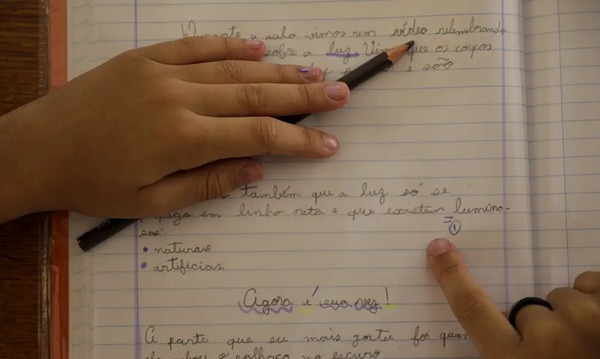 Durante a aula vimos um vídeo relembrando
sobre a luz. Vimos que os corpos
e são
também que a luz só se
propaga em linha reta e que existem lumino-
sos:
• naturais
• artificiais
Agora é sua vez!
A parte que eu mais gostei foi quan
o palhaço no escuro